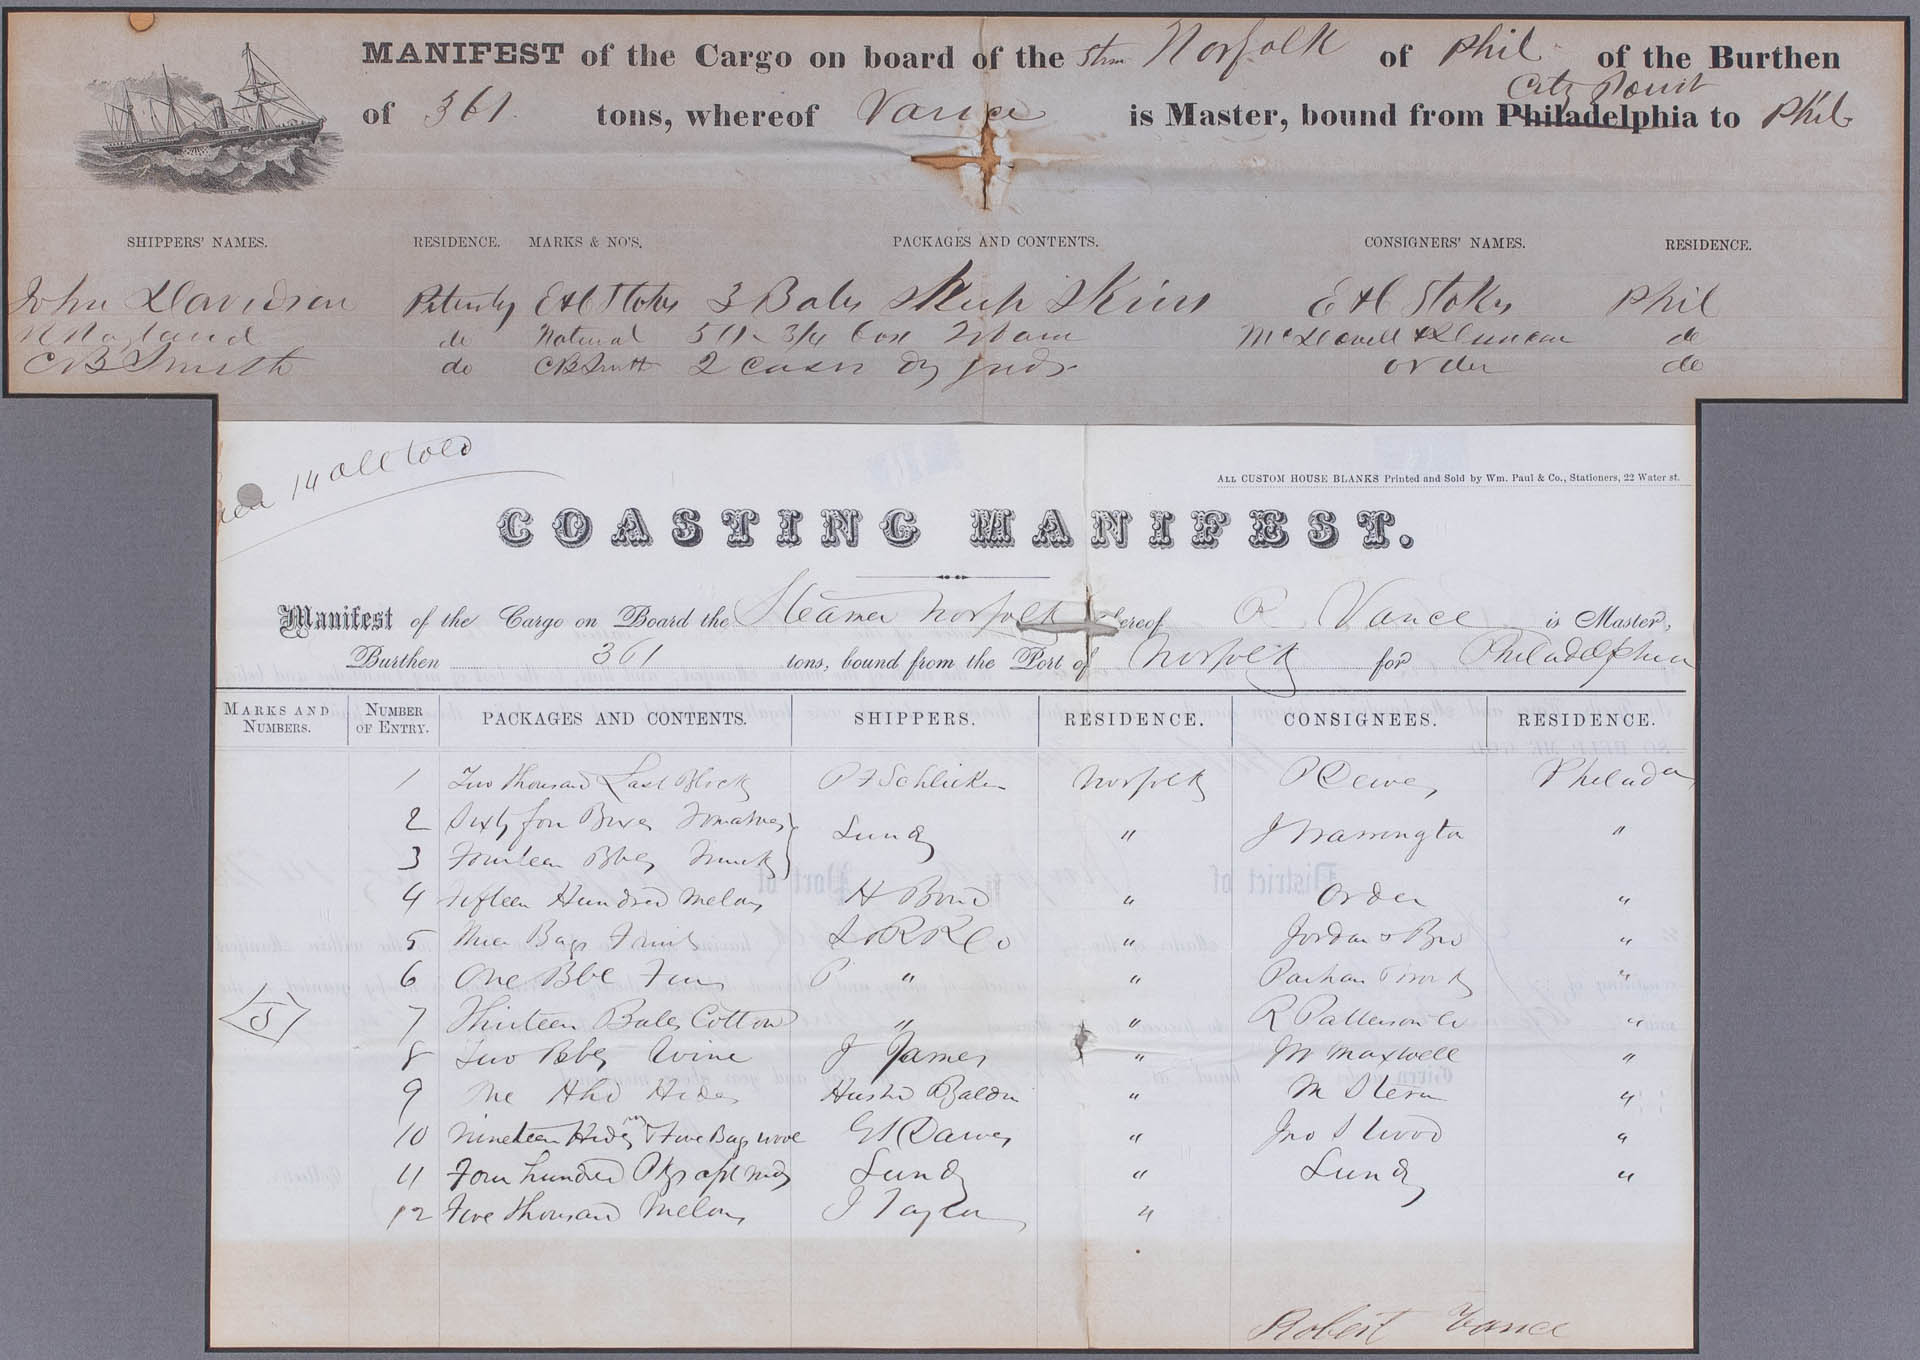 MANIFEST of the Cargo on board of the Stm Norfolk of Phil of the Burthen
City Point
of 361 tons, whereof Vance is Master, bound from Philadelphia to Phil
SHIPPERS' NAMES. RESIDENCE. MARKS & NO'S. PACKAGES AND CONTENTS. CONSIGNERS' NAMES. RESIDENCE.
John Davidson E & C Stokes 3 Bales Sheep Skins E & C Stokes Phil
do Natural 3/4 box McDowell & Duncan do
CB Smith do CB Smith 2 cases order do
14 all told
ALL CUSTOM HOUSE BLANKS Printed and Sold by Wm. Paul & Co., Stationers, 22 Water st.
COASTING MANIFEST.
Manifest of the Cargo on Board the Steamer Norfolk whereof R Vance is Master,
Burthen 361 tons, bound from the Port of Norfolk for Philadelphia
MARKS AND NUMBERS. NUMBER OF ENTRY. PACKAGES AND CONTENTS. SHIPPERS. RESIDENCE. CONSIGNEES. RESIDENCE.
1 Two thousand Last Block Norfolk Philada
2 Sixty four Boxes Tomatoes Lundy " J Warrington "
3 Fourteen Bbls
4 Fifteen Hundred Melons H Bond " Order "
5 Bags " Jordan & Bro "
6 One Bbl " " "
S 7 Thirteen Bales Cotton " " R Patterson Co "
8 Two Bbls Wine J James " M Maxwell "
9 One Hhd Hides " M Stern "
10 Nineteen Hides & Five Bags wool " Jno S Wood "
11 Four hundred Lundy " Lundy "
12 Five thousand Melons J Taylor "
Robert Vance